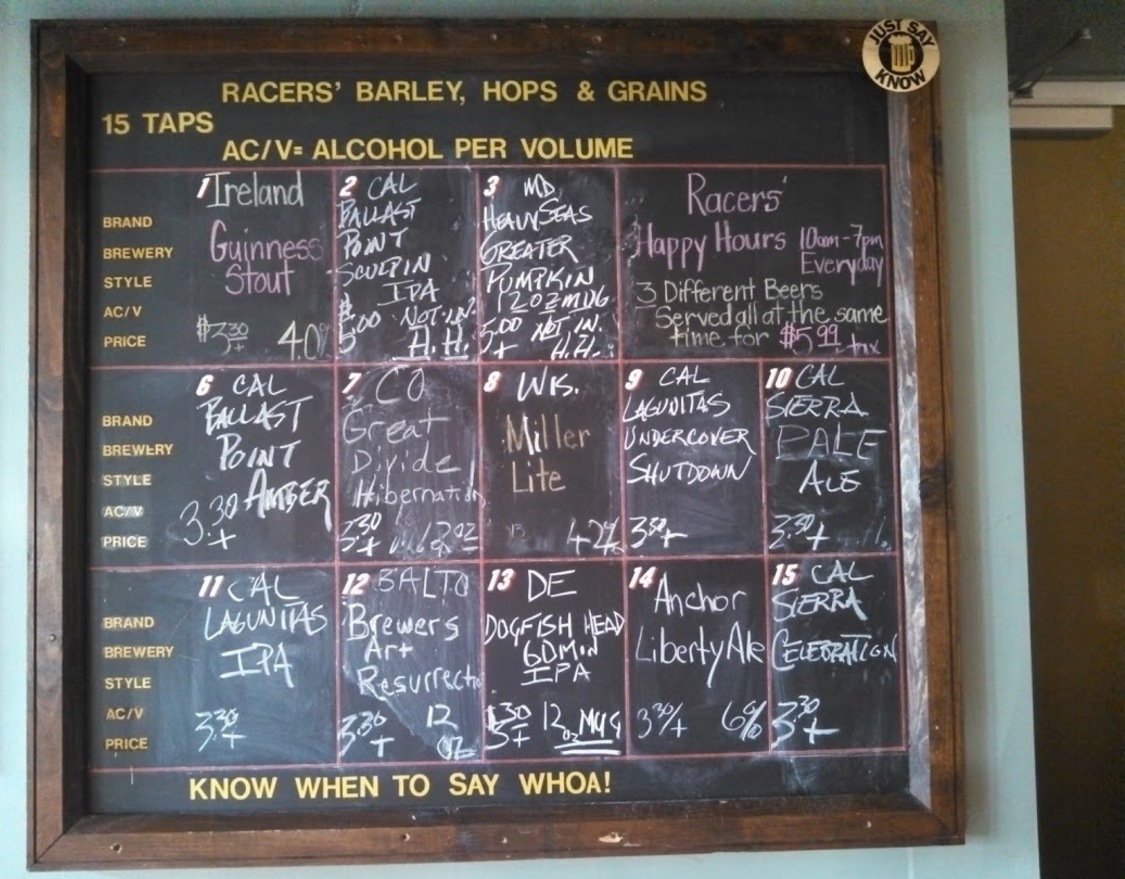 JUST SAY
KNOW
RACERS' BARLEY, HOPS & GRAINS
15 TAPS
AC/V= ALCOHOL PER VOLUME
BRAND
BREWERY
STYLE
AC/V
PRICE
1 Ireland
Guinness
Stout
$3.30
+
4.0%
2 CAL
BALLAST
POINT
SCULPIN
IPA
$
5.00 NOT IN
H.H.
3 MD
HEAVY SEAS
GREATER
PUMPKIN
12 OZ MUG
5.00 NOT IN
+ H.H.
Racers'
Happy Hours 10am-7pm
Everyday
3 Different Beers
Served all at the same
time for $5.99 + tax
BRAND
BREWERY
STYLE
AC/V
PRICE
6 CAL
BALLAST
POINT
AMBER
3.30
+
7 CO
Great
Divide
Hibernation
3.30
+ 12 oz
8 WIS.
Miller
Lite
4.2%
9 CAL
LAGUNITAS
UNDERCOVER
SHUTDOWN
3.30+
10 CAL
SIERRA
PALE
ALE
3.30
+
BRAND
BREWERY
STYLE
AC/V
PRICE
11 CAL
LAGUNITAS
IPA
3.30
+
12 BALTO
Brewers
Art
Resurrectio
3.30 12
+ OZ
13 DE
DOGFISH HEAD
60 MIN
IPA
3.30 12 oz MUG
+
14
Anchor
Liberty Ale
3.30/+ 6%
15 CAL
SIERRA
CELEBRATION
3.30
+
KNOW WHEN TO SAY WHOA!